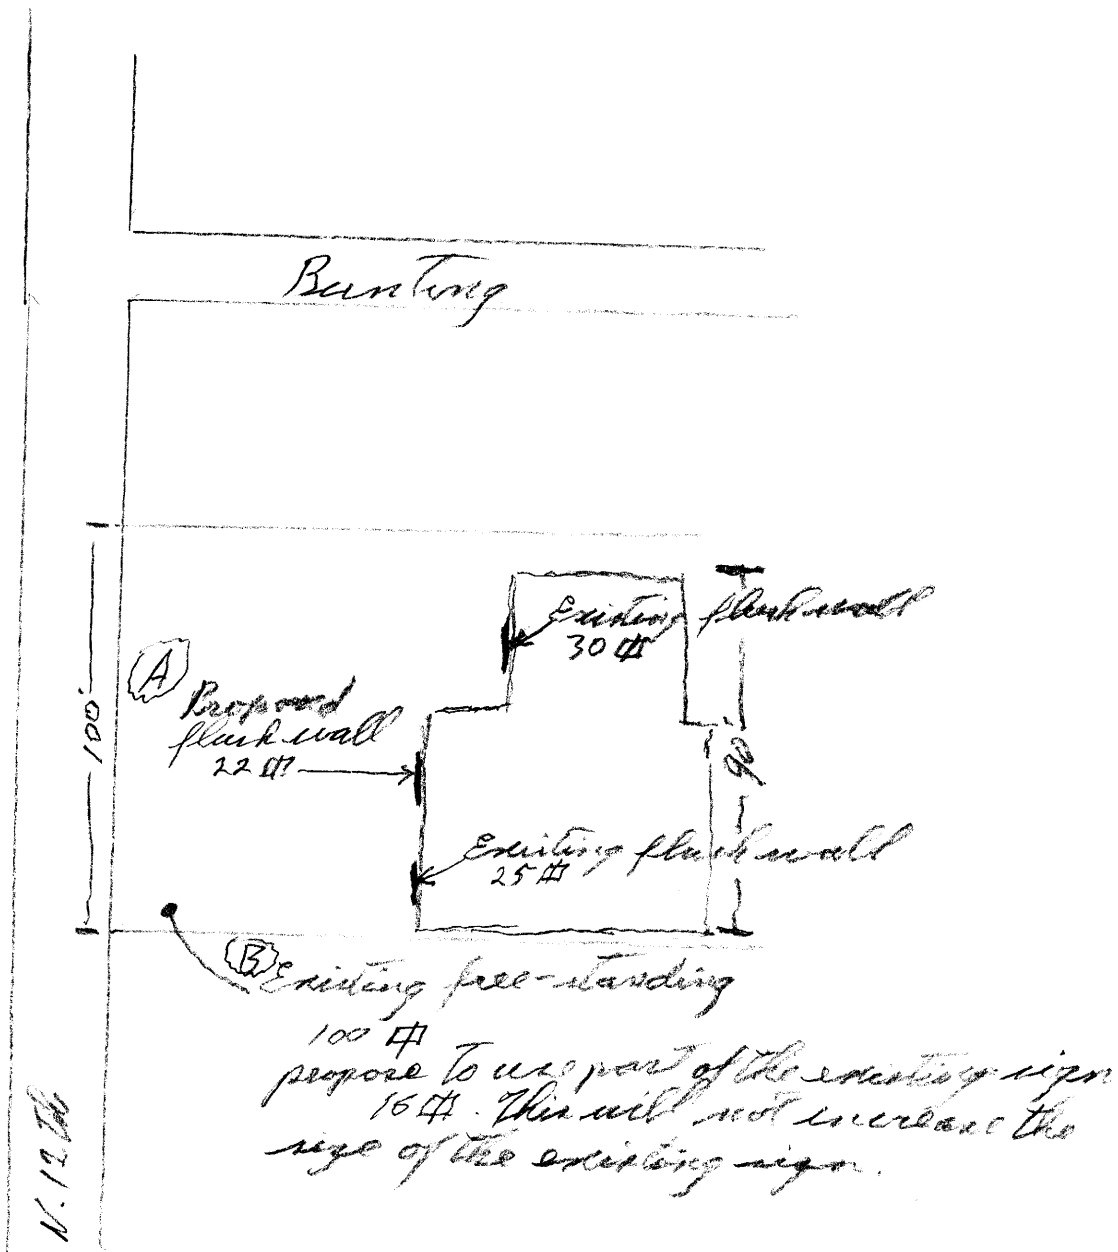 Bunting
Existing flush wall
30 ⌗
A
Proposed
flush wall
22 ⌗
100'
90'
Existing flush wall
25 ⌗
B Existing free-standing
100 ⌗
propose to use part of the existing sign
16 ⌗. This will not increase the
size of the existing sign.
N. 12th